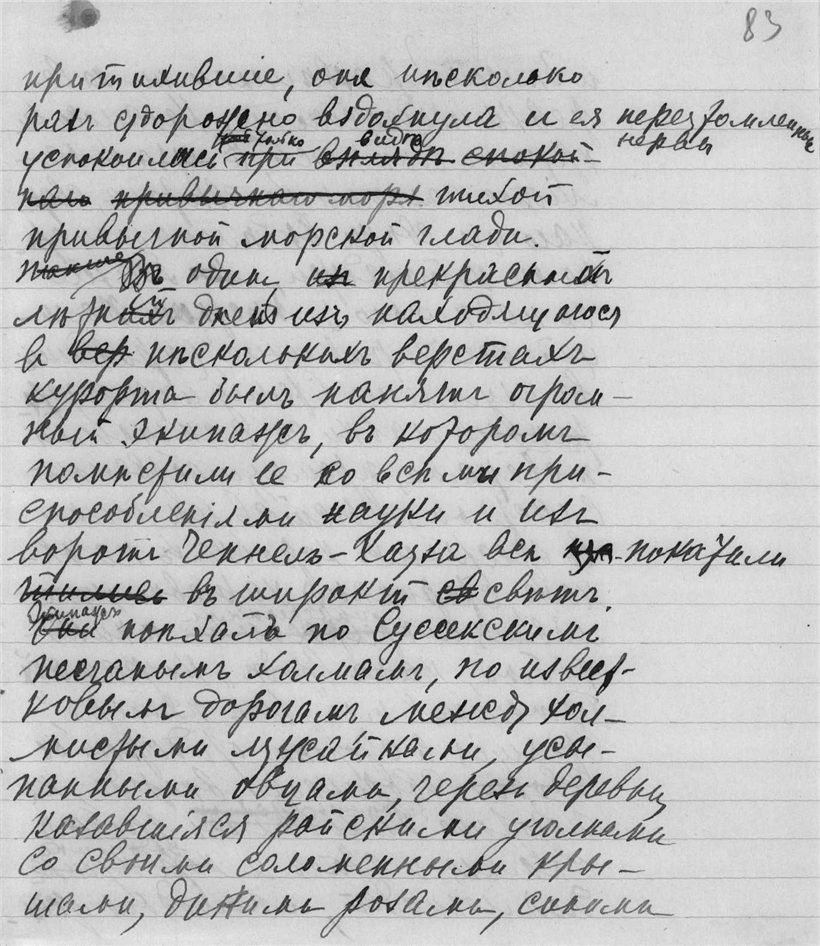 83
притихившіе, она нѣсколько
разъ судорожно вздохнула и ея переутомленные
нервы
успокоились только при видѣ внядѣ спокой-
наго привычнаго моря тихой
привычной морской глади.
Въ один из прекрасный
лѣтній день изъ находящагося
в вер нѣсколькихъ верстахъ
курорта былъ нанятъ огром-
ный экипажъ, въ которомъ
помѣстили ее со всѣми при-
способленіями науки и изъ
воротъ Ченнель-Хауза всѣ покатили
тились въ широкій св свѣтъ.
Экипажъ
Они поѣхалъ по Суссекскимъ
песчанымъ холмамъ, по извест-
ковымъ дорогамъ между хол-
мистыми лужайками, усы-
панными овцами, черезъ деревни
казавшіяся райскими уголками
со своими соломенными кры-
шами, дикими розами, синими